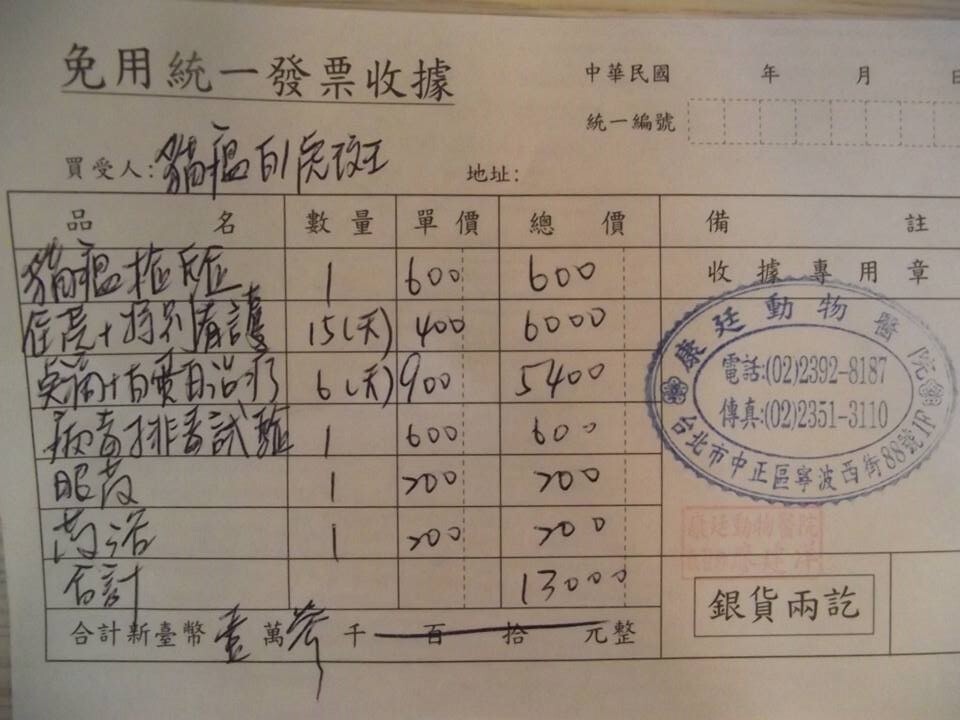 免用統一發票收據
中華民國 年 月 日
統一編號
買受人:貓瘟白虎斑王 地址:
品名 數量 單價 總價 備註
貓瘟檢驗 1 600 600 收據專用章
住院+特別看護 15(天) 400 6000
點滴+自費治療 6(天) 900 5400
病毒排毒試驗 1 600 600
眼藥 1 200 200
藥浴 1 200 200
合計 13000
合計新臺幣壹萬參千百拾元整
康廷動物醫院
電話:(02)2392-8187
傳真:(02)2351-3110
台北市中正區寧波西街88號1F
康廷動物醫院
銀貨兩訖